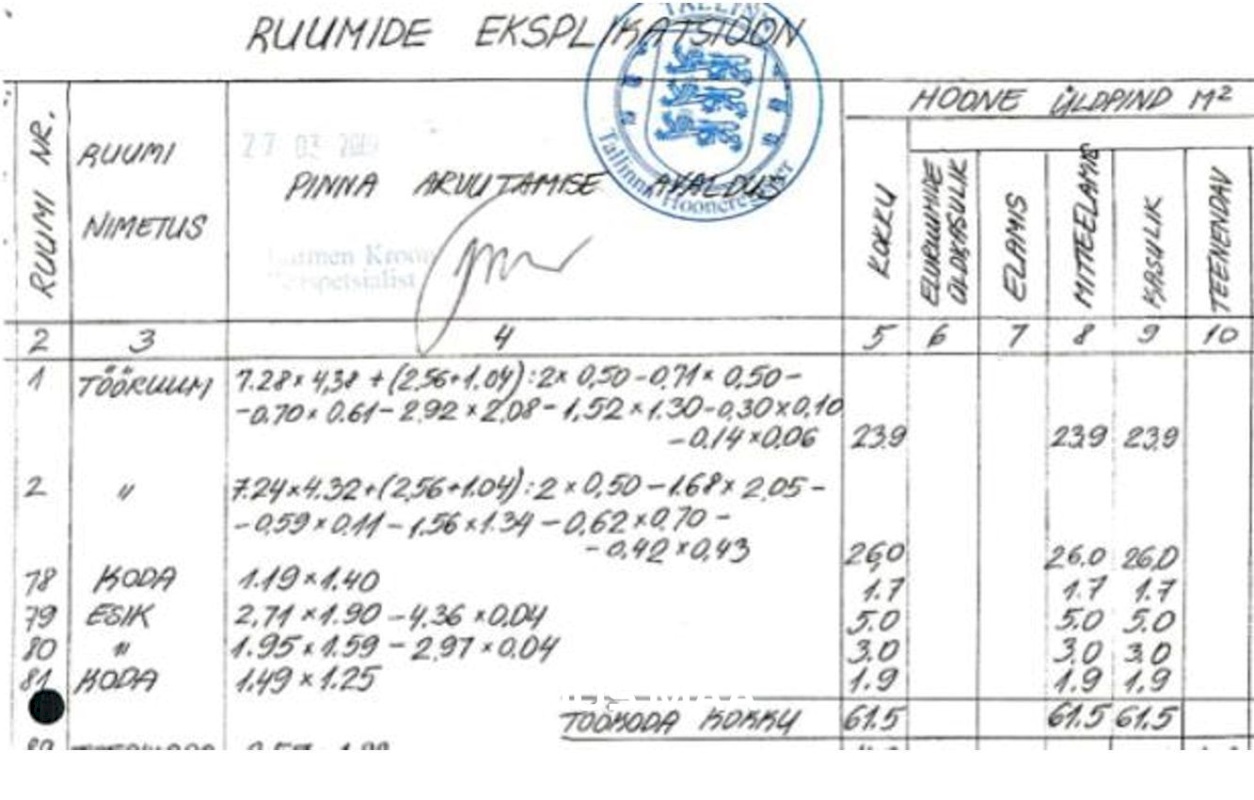 RUUMIDE EKSPLIKATSIOON
TALLINN
Tallinna Hooneregister
HOONE ÜLDPIND M2
RUUMI NR.
RUUMI NIMETUS
27 03
PINNA ARVUTAMISE AVALDUS
Kroon
KOKKU
ELURUUMIDE ÜLDKASULIK
ELAMIS
MITTEELAMIS
KASULIK
TEENENDAV
2 3 4 5 6 7 8 9 10
1 TÖÖRUUM 7.28×4,38 +(2,56+1.04):2×0,50-0.71×0,50-
-0.70×0.61-2.92×2,08-1,52×1.30-0,30×0,10
-0.14×0,06 23.9 23.9 23.9
2 " 7.24×4.32+(2,56+1.04):2×0,50-1.68×2,05-
-0,59×0.11-1,56×1.34-0,62×0,70-
-0,42×0,43 26,0 26.0 26.0
78 KODA 1.19×1.40 1.7 1.7 1.7
79 ESIK 2,71×1.90-4,36×0,04 5.0 5.0 5.0
80 " 1.95×1.59-2,97×0.04 3.0 3.0 3.0
81 KODA 1,49×1.25 1.9 1.9 1.9
TÖÖKODA KOKKU 61.5 61.5 61.5